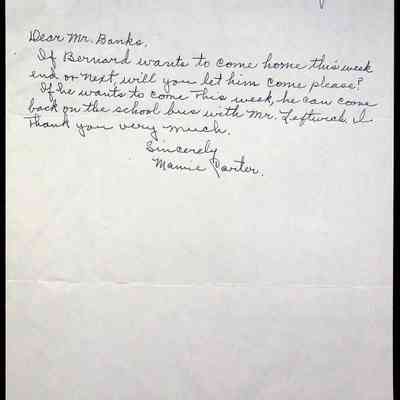 Dear Mr. Banks,
If Bernard wants to come home this week
end or next, will you let him come please?
If he wants to come This week, he can come
back on the school bus with Mr. Leftwich. I
Thank you very much.
Sincerely
Mamie Carter.